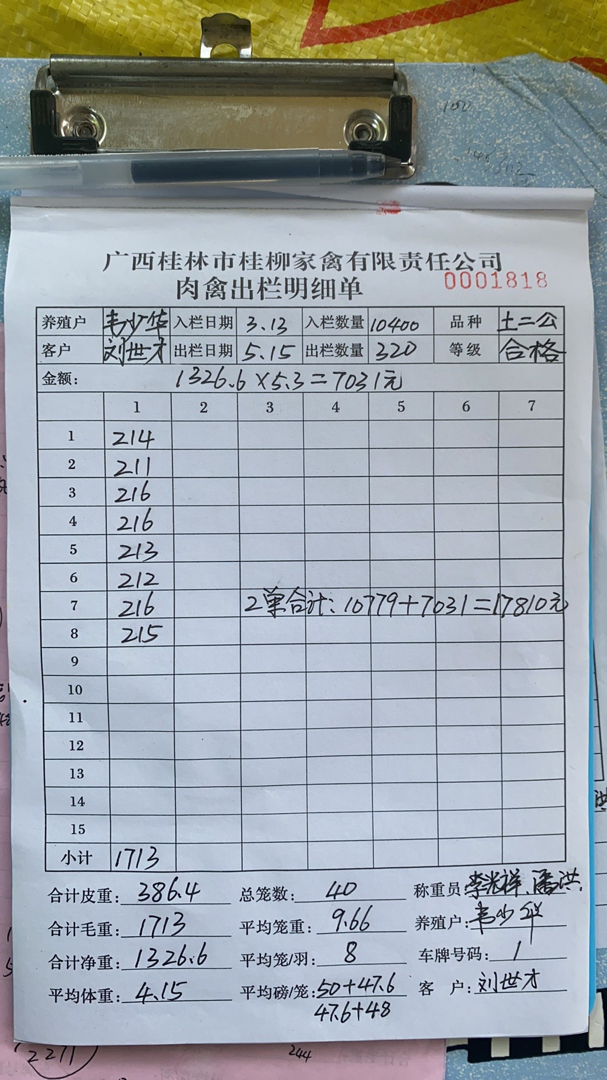 广西桂林市桂柳家禽有限责任公司
肉禽出栏明细单 0001818
养殖户 韦少华 入栏日期 3.13 入栏数量 10400 品种 土二公
客户 刘世才 出栏日期 5.15 出栏数量 320 等级 合格
金额: 1326.6×5.3=7031元
1 2 3 4 5 6 7
1 214
2 211
3 216
4 216
5 213
6 212
7 216 2单合计: 10779+7031=17810元
8 215
9
10
11
12
13
14
15
小计 1713
合计皮重: 386.4 总笼数: 40 称重员 李光祥、潘洪
合计毛重: 1713 平均笼重: 9.66 养殖户: 韦少华
合计净重: 1326.6 平均笼/羽: 8 车牌号码: 1
平均体重: 4.15 平均磅/笼: 50+47.6 客 户: 刘世才
47.6+48
2271
244